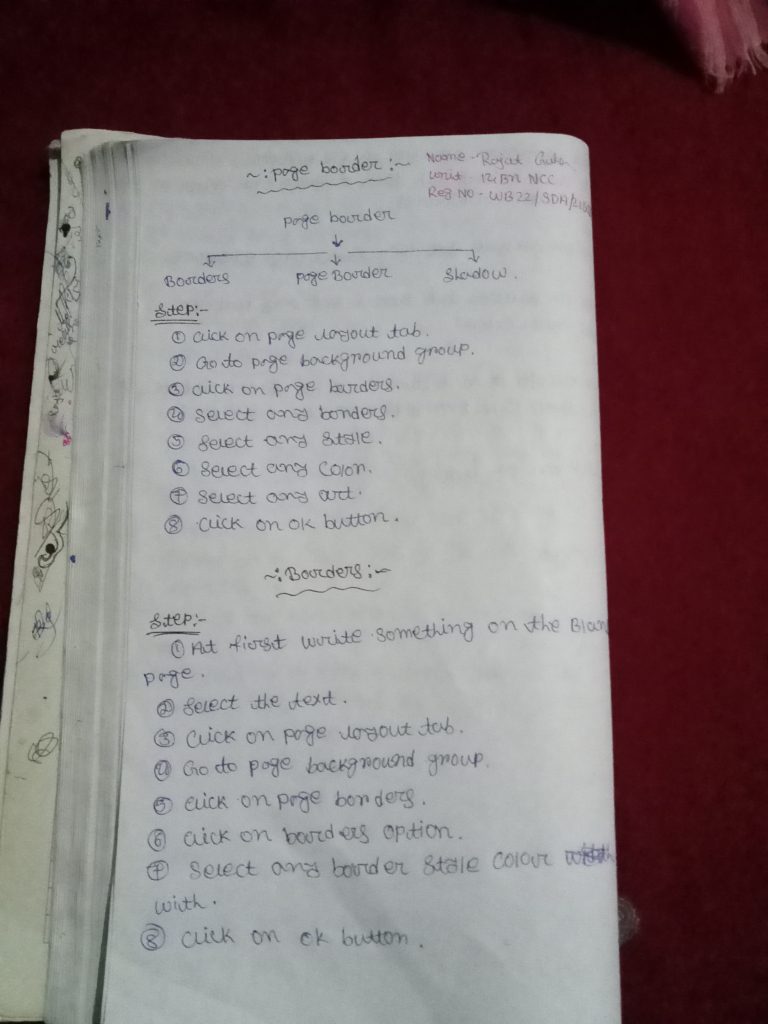 ~: page boarder :~
Name - Rajat
Unit - 12 BN NCC
Reg NO - WB22/SDA/
page boarder
Boarders page Boarder Shadow.
Step:-
① click on page layout tab.
② Go to page background group.
③ click on page barders.
④ select any borders.
⑤ select any style.
⑥ select any color.
⑦ select any art.
⑧ click on ok button.
~: Boarders :~
Step:-
① At first write something on the Blan
page.
② select the text.
③ click on page layout tab.
④ Go to page background group.
⑤ click on page borders.
⑥ click on boarders option.
⑦ select any boarder style colour
with.
⑧ click on ok button.